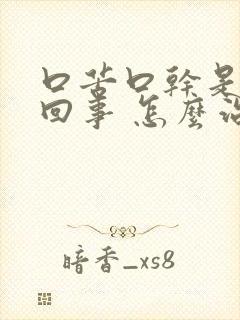 口苦口幹是
回事 怎麼治
暗香_xs8